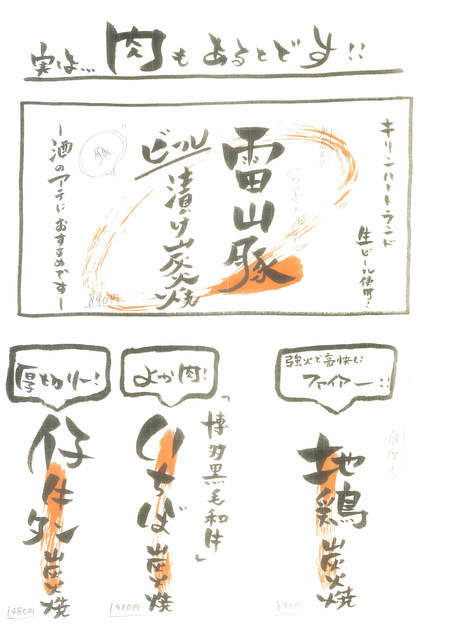 実は… 肉もあるとです!!
キリンハートランド
生ビール使用!
雷山豚
ビール
漬け炭火焼
豚
〜酒のアテにおすすめです〜
890円
強火で豪快に
ファイアー!!
地鶏
炭火焼
890円
よか肉!
「博多黒毛和牛」
いちぼ
炭火焼
1980円
厚切り〜!
仔牛タン
炭火焼
1480円